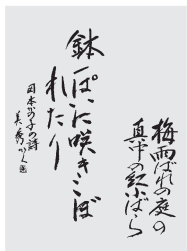 梅雨ばれの庭の
真中の紅小ばら
鉢一ぱいに咲きこぼ
れたり
岡本かの子の詩
美秀かく